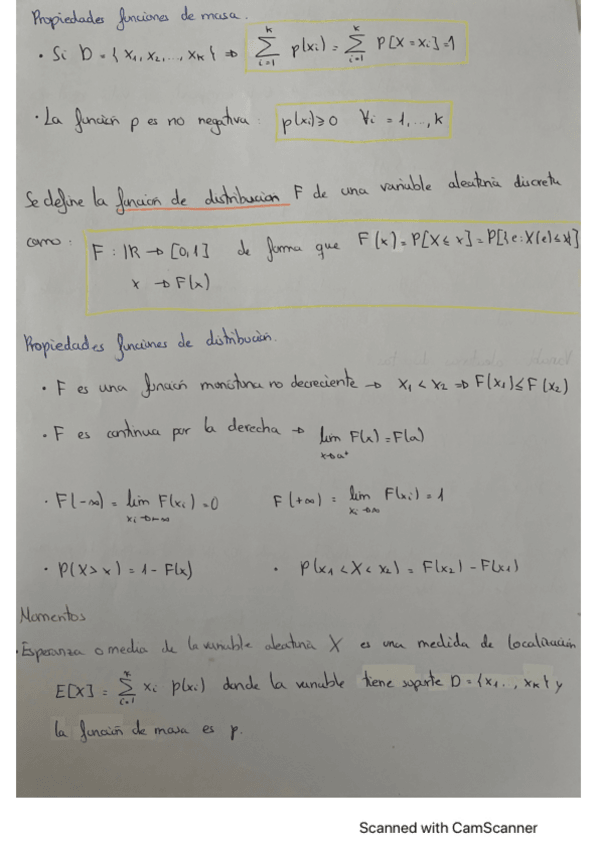 Propiedades funciones de masa.
• Si D = { x₁, x₂, ..., xₖ } ⇒ ∑ᵢ₌₁ᵏ p(xᵢ) = ∑ᵢ₌₁ᵏ P[X = xᵢ] = 1
• La función p es no negativa: p(xᵢ) ≥ 0 ∀i = 1, ..., k
Se define la función de distribución F de una variable aleatoria discreta
como: F : ℝ → [0,1] de forma que F(x) = P[X ≤ x] = P[{e : X(e) ≤ x}]
x → F(x)
Propiedades funciones de distribución.
• F es una función monótona no decreciente → x₁ < x₂ ⇒ F(x₁) ≤ F(x₂)
• F es continua por la derecha → lim F(x) = F(a)
x→a⁺
• F(-∞) = lim F(xᵢ) = 0 F(+∞) = lim F(xᵢ) = 1
xᵢ→-∞ xᵢ→∞
• P(X > x) = 1 - F(x) • P(x₁ < X < x₂) = F(x₂) - F(x₁)
Momentos
• Esperanza o media de la variable aleatoria X es una medida de localización
E[X] = ∑ᵢ₌₁ᵏ xᵢ p(xᵢ) donde la variable tiene soporte D = {x₁..., xₖ} y
la función de masa es p.
Scanned with CamScanner